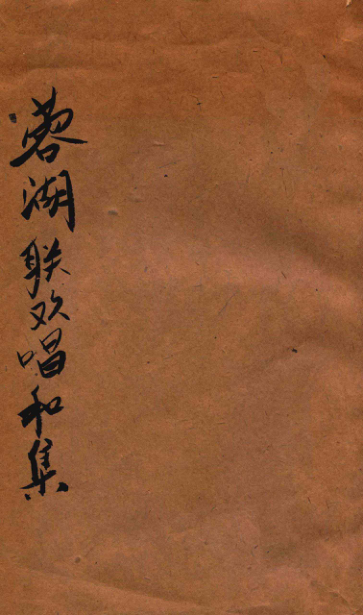 蓉湖联欢唱和集